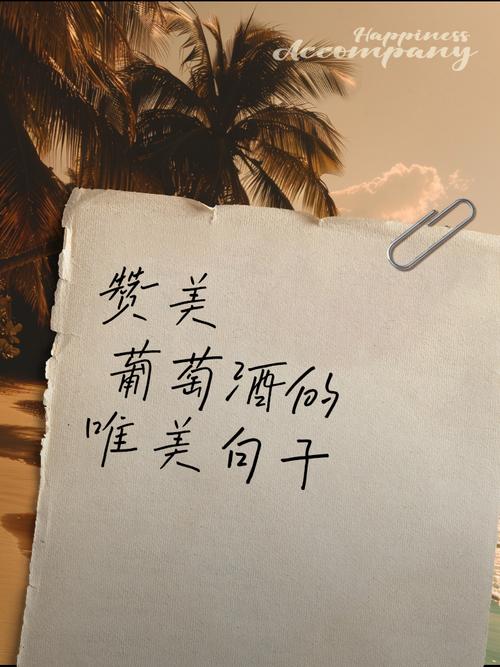 Happiness
Accompany
赞美
葡萄酒的
唯美句子